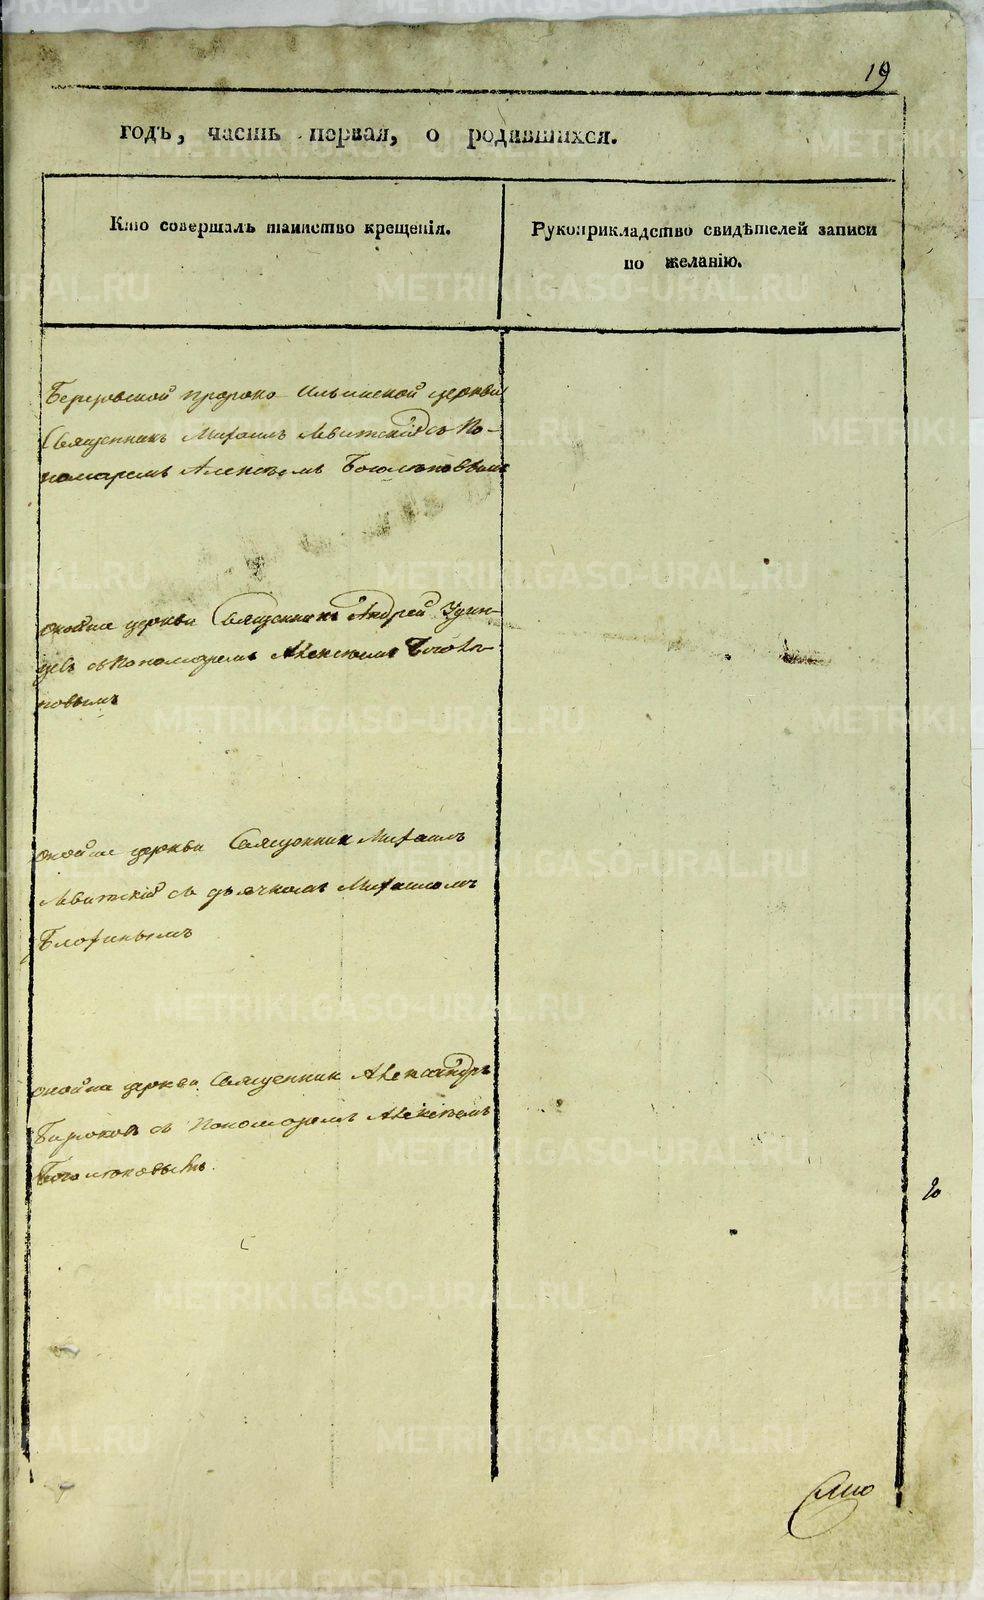 19
годъ, часть первая, о родившихся.
Кто совершалъ таинство крещенія.
Рукоприкладство свидѣтелей записи
по желанію.
Березовской пророко Ильинской церкви
Священникъ Михаилъ Левитскій съ По-
номаремъ Алексѣемъ Боголѣповымъ
оной же церкви Священникъ Андрей Удин-
цевъ съ Пономаремъ Алексѣемъ Боголѣ-
повымъ
оной же церкви Священник Михаилъ
Левитскій съ дьячкомъ Михаиломъ
оной же церкви Священник Александръ
съ Пономаремъ Алексѣемъ
METRIKI.GASO-URAL.RU